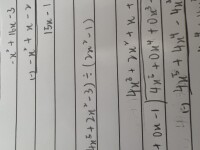 -x² + 16x - 3
(-) -x² + x - 2
15x - 1
4x⁵ + 2x² - 3) ÷ (2x² - 1)
4x³ + 2x² + x +
+ 0x - 1 ) 4x⁵ + 0x⁴ + 0x³
4x⁵ + 4x⁴ - 4x